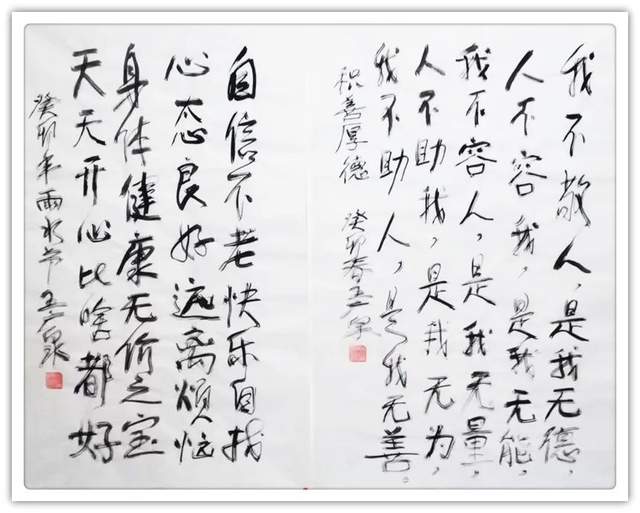 我不敬人，是我无德，
人不容我，是我无能，
我不容人，是我无量，
人不助我，是我无为，
我不助人，是我无善。
积善厚德 癸卯春
自信不老快乐自找
心态良好远离烦恼
身体健康无价之宝
天天开心比啥都好
癸卯年雨水节